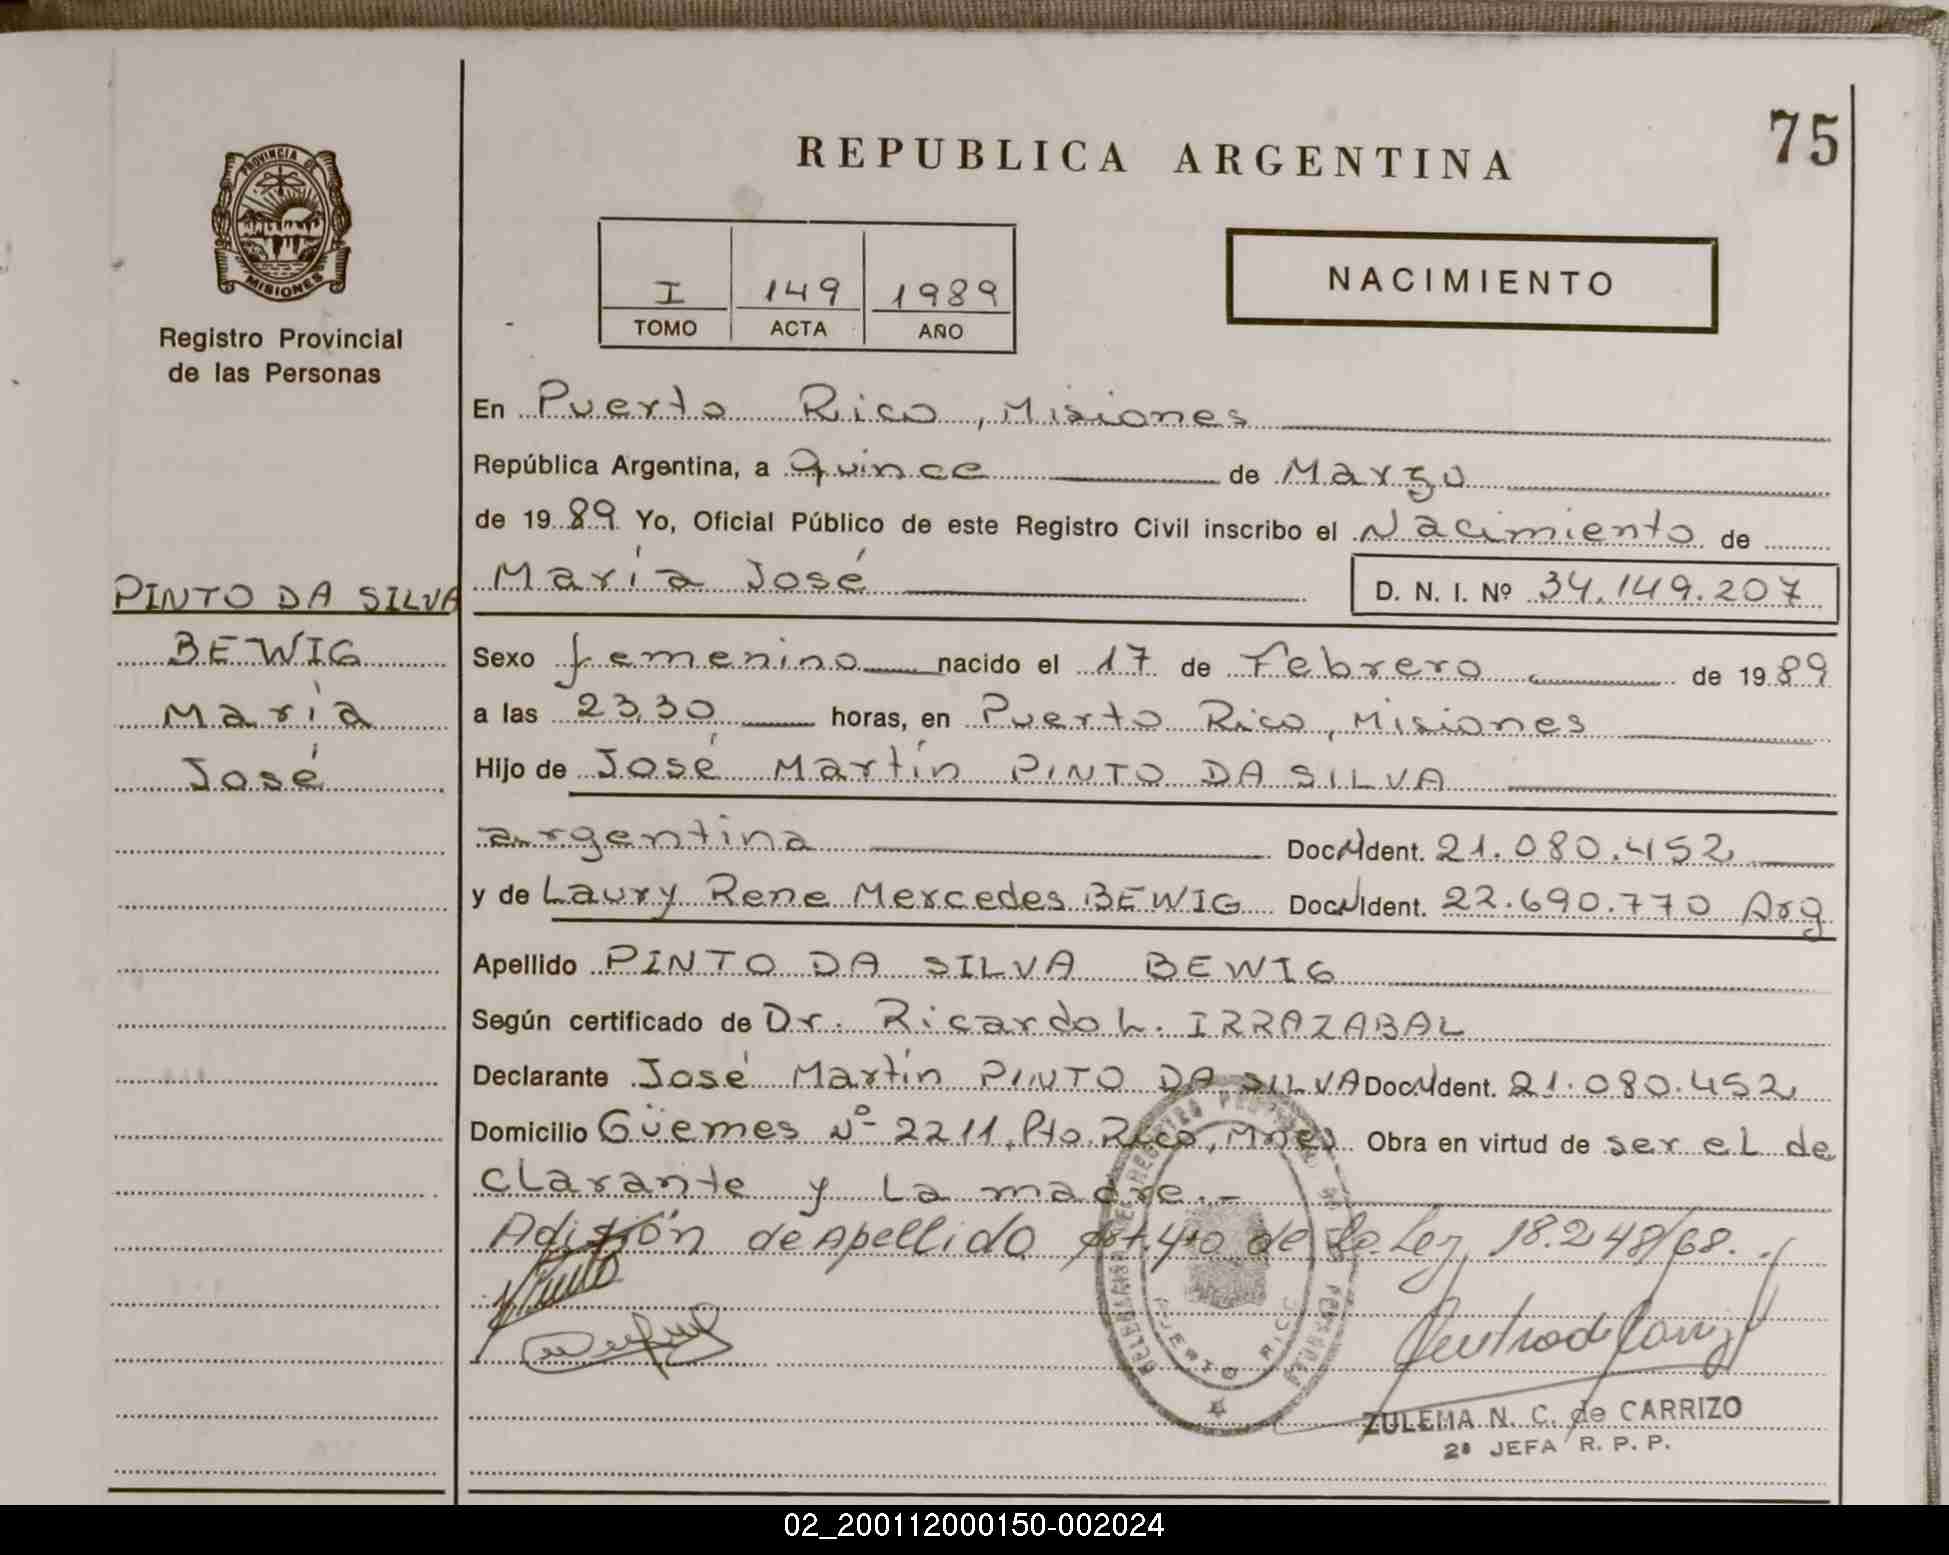 75
REPUBLICA ARGENTINA
PROVINCIA DE
MISIONES
Registro Provincial
de las Personas
I 149 1989
TOMO ACTA AÑO
NACIMIENTO
En Puerto Rico, Misiones
República Argentina, a Quince de Marzo
de 1989 Yo, Oficial Público de este Registro Civil inscribo el Nacimiento de
María José D. N. I. Nº 34.149.207
PINTO DA SILVA
BEWIG
María
José
Sexo femenino nacido el 17 de Febrero de 1989
a las 23,30 horas, en Puerto Rico, Misiones
Hijo de José Martín PINTO DA SILVA
argentina Doc.N.Ident. 21.080.452
y de Laury Rene Mercedes BEWIG Doc.N.Ident. 22.690.770 Arg
Apellido PINTO DA SILVA BEWIG
Según certificado de Dr. Ricardo L. IRRAZABAL
Declarante José Martín PINTO DA SILVA Doc.N.Ident. 21.080.452
Domicilio Güemes Nº 2211, Pto. Rico, Mnes Obra en virtud de ser el de
clarante y la madre.-
Adición de Apellido art. 4to de la Ley 18.248/68.
PUERTO RICO
ZULEMA N. C. de CARRIZO
2ª JEFA R. P. P.
02_200112000150-002024